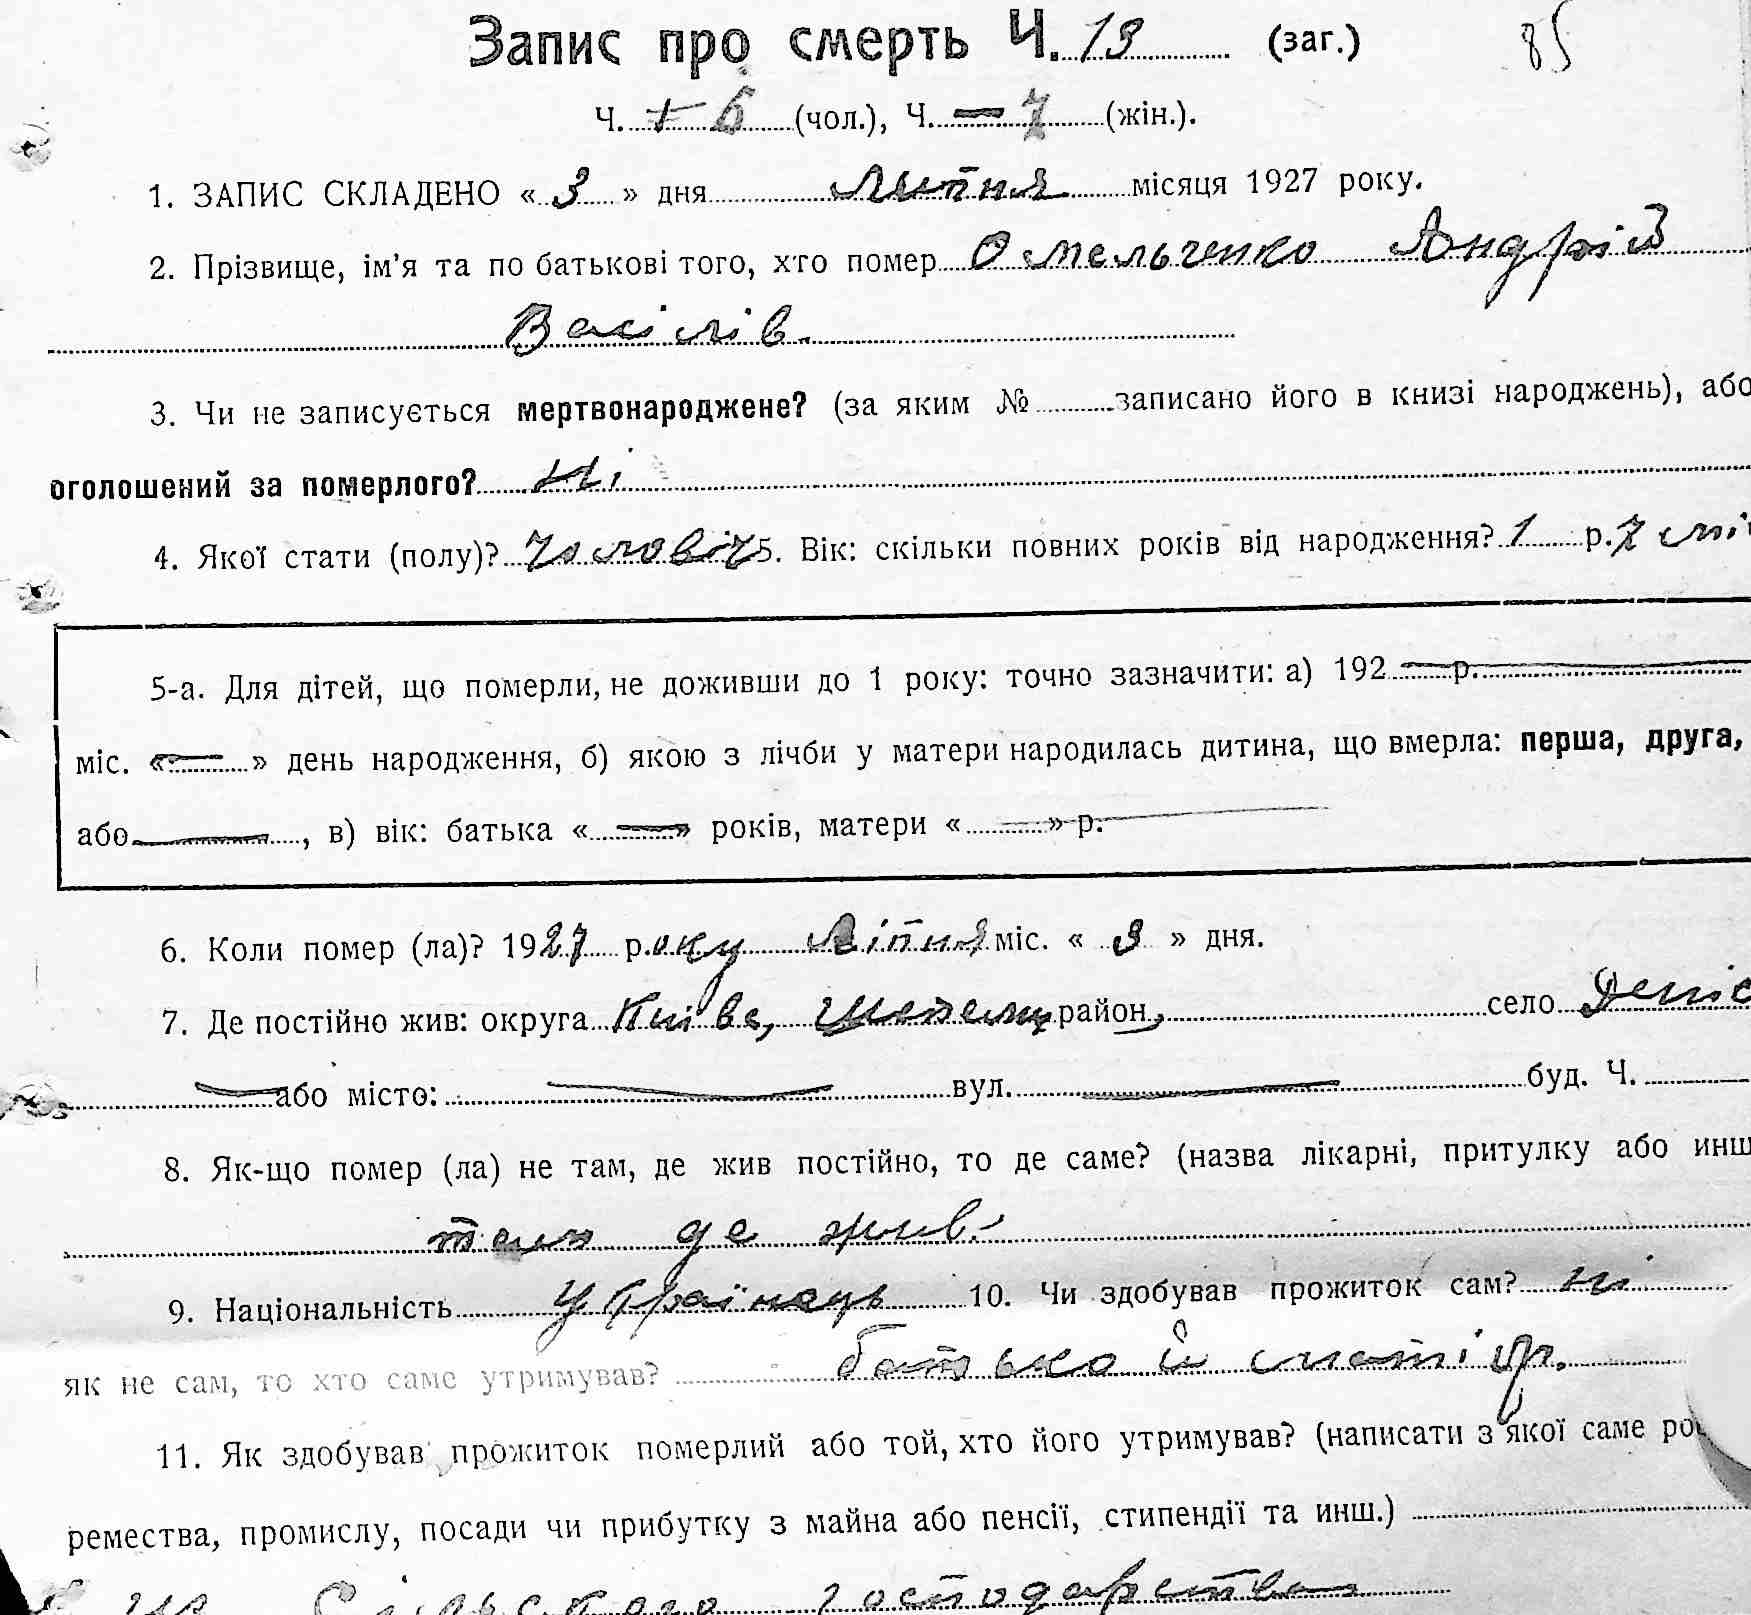 Запис про смерть Ч. 13 (заг.) 85
Ч. 6 (чол.), Ч. — 7 (жін.).
1. ЗАПИС СКЛАДЕНО « 3 » дня Липня місяця 1927 року.
2. Прізвище, ім'я та по батькові того, хто помер Омельченко Андрій
Васілів.
3. Чи не записується мертвонароджене? (за яким № записано його в книзі народжень), або
оголошений за померлого? Ні
4. Якої стати (полу)? Чоловіч 5. Вік: скільки повних років від народження? 1 р. 7 мі
5-а. Для дітей, що померли, не доживши до 1 року: точно зазначити: а) 192 — р. —
міс. « — » день народження, б) якою з лічби у матери народилась дитина, що вмерла: перша, друга,
або —, в) вік: батька « — » років, матери « — » р. —
6. Коли помер (ла)? 1927 року Ліпня міс. « 3 » дня.
7. Де постійно жив: округа Київс, Шепелиц район, село Деніс
— або місто: — вул. — буд. Ч.
8. Як-що помер (ла) не там, де жив постійно, то де саме? (назва лікарні, притулку або инш
там де жив.
9. Національність Українець 10. Чи здобував прожиток сам? ні
як не сам, то хто саме утримував? батько й матір.
11. Як здобував прожиток померлий або той, хто його утримував? (написати з якої саме ро
ремества, промислу, посади чи прибутку з майна або пенсії, стипендії та инш.)
Сільського господарства